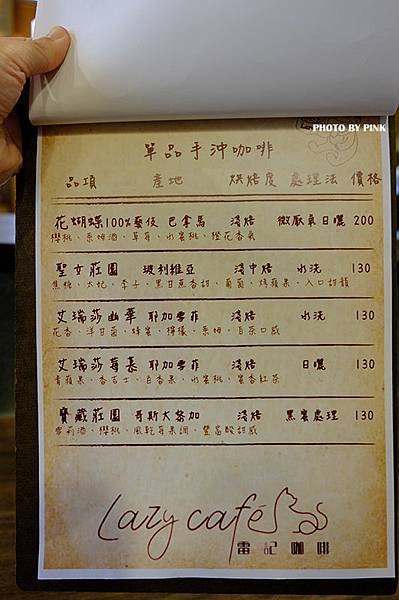 PHOTO BY PINK
單品手沖咖啡
品項 產地 烘焙度 處理法 價格
花蝴蝶100%藝伎 巴拿馬 淺焙 微厭氧日曬 200
櫻桃、草莓、水蜜桃、橙花香氣
聖女莊園 玻利維亞 淺中焙 水洗 130
焦糖、太妃、李子、黑甘蔗香甜、葡萄、烤蘋果、入口甜韻
艾瑞莎幽華 耶加雪菲 淺焙 水洗 130
花香、洋甘菊、蜂蜜、檸檬、茶口感
艾瑞莎莓長 耶加雪菲 淺焙 日曬 130
青蘋果、香吉士、百香果、水蜜桃、蜜香紅茶
寶藏莊園 哥斯大黎加 淺焙 黑蜜處理 130
櫻桃、風乾莓果調、豐富酸甜感
Lazy cafe
雷記咖啡